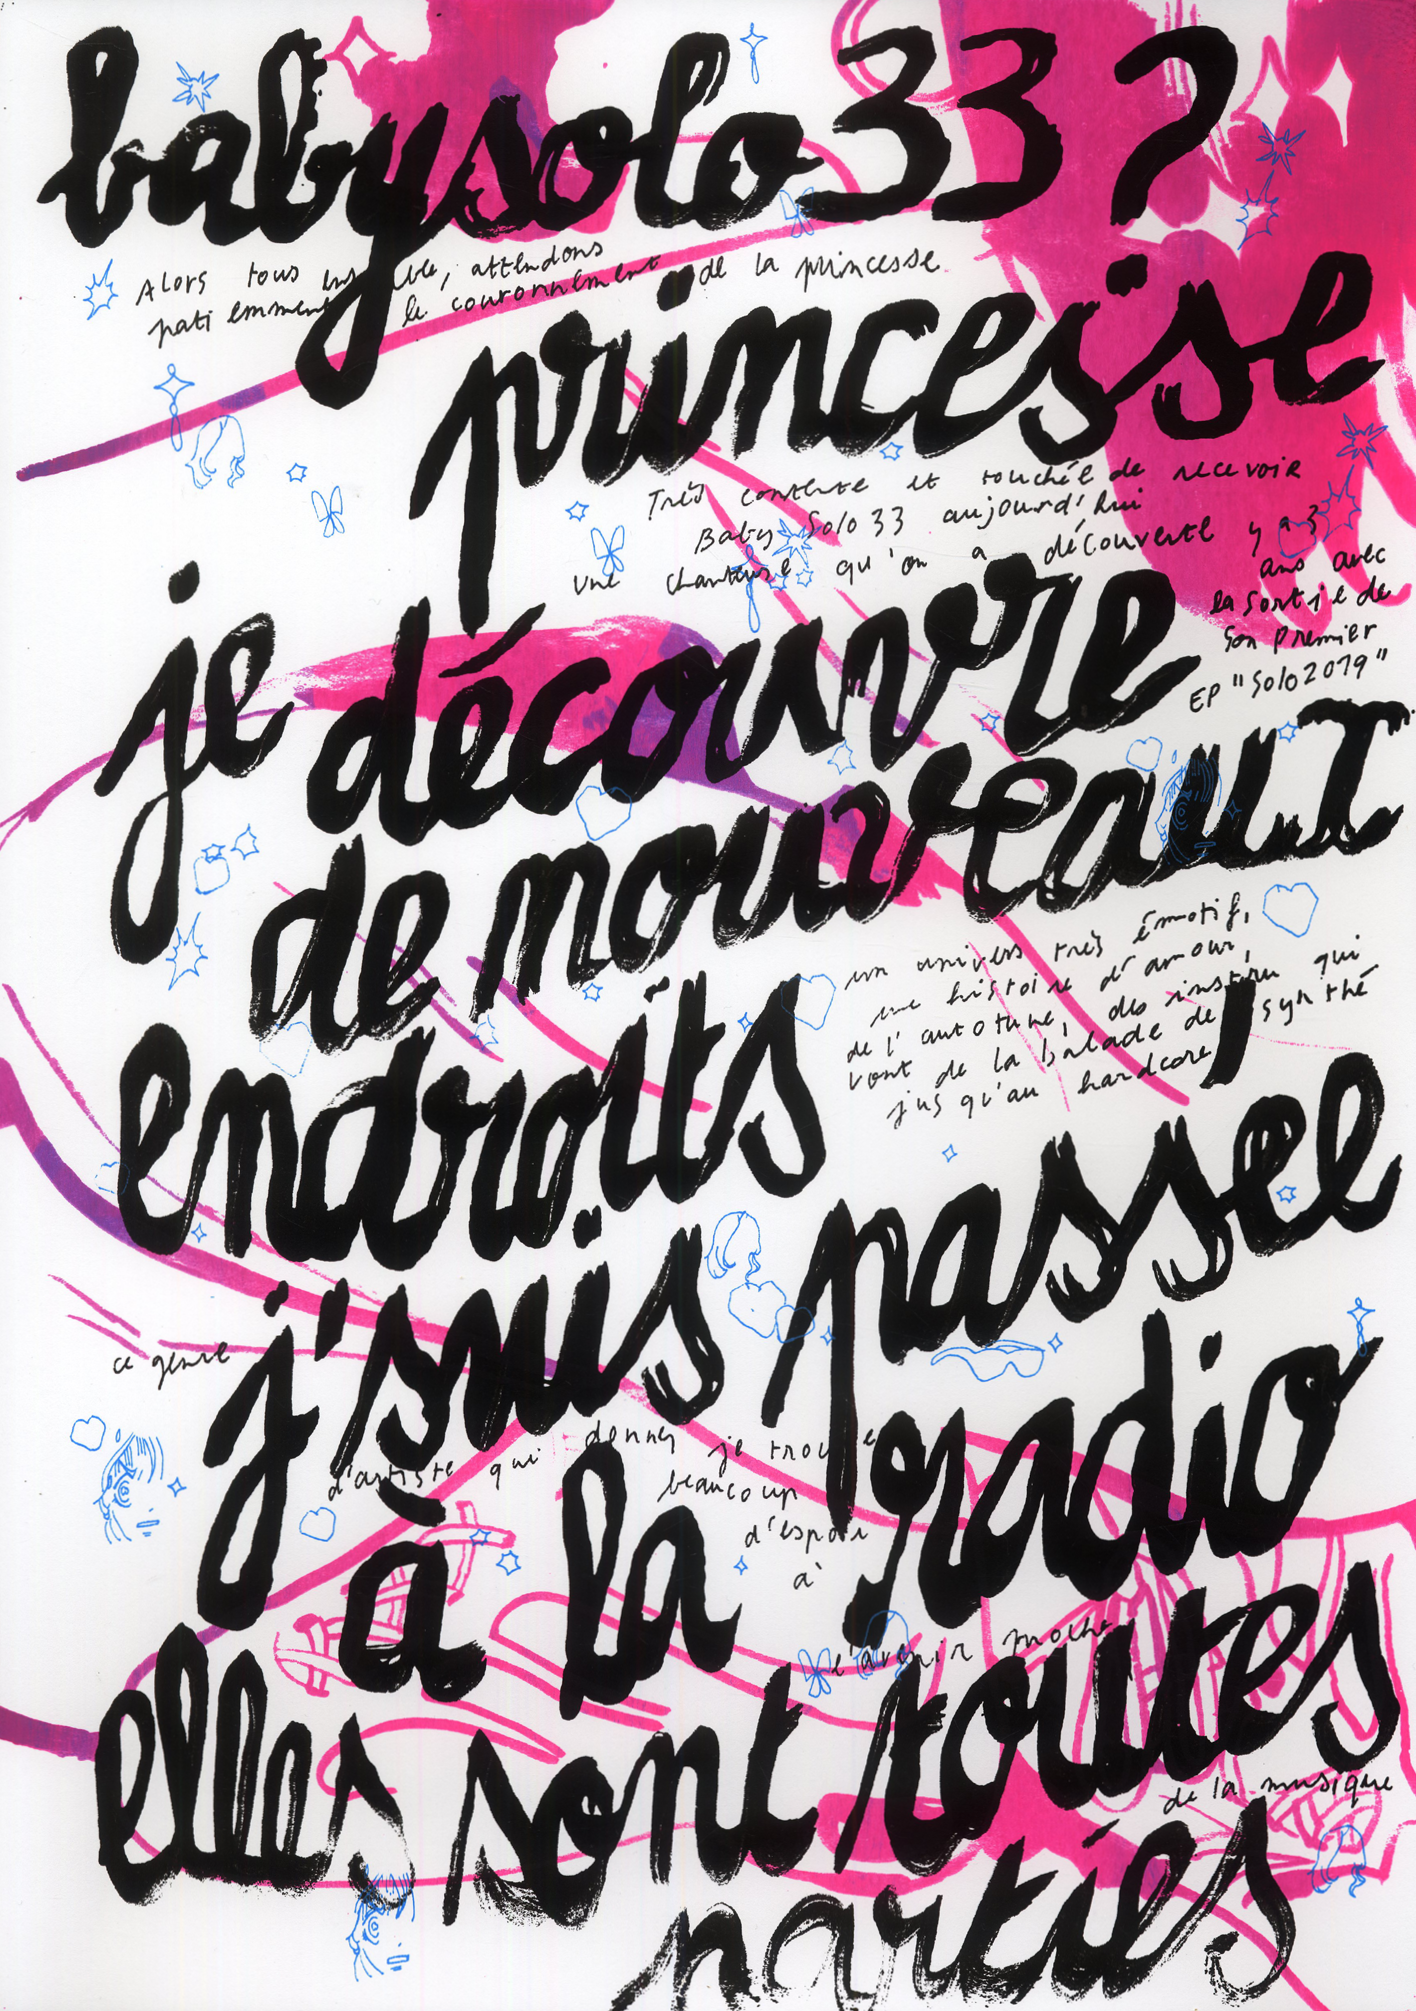 babysolo33 ?
Alors tous ens ble, attendons
pati emment le couronnement de la princesse
princesse
Très contente et touchée de recevoir
Baby Solo 33 aujourd'hui
une chanteuse qu'on a découverte y a 3
ans avec
la sortie de
son premier
EP "Solo2019"
je découvre
de nouveaux
un univers très émotif,
une histoire d'amour,
de l'autotune, des instru qui
vont de la balade de synthé
jusqu'au hardcore
endroits,
j'suis passee
ce genre
d'artiste qui donne, je trouve
beaucoup
d'espoir
à
à la radio
l'avenir moche
elles sont toutes
de la musique
parties